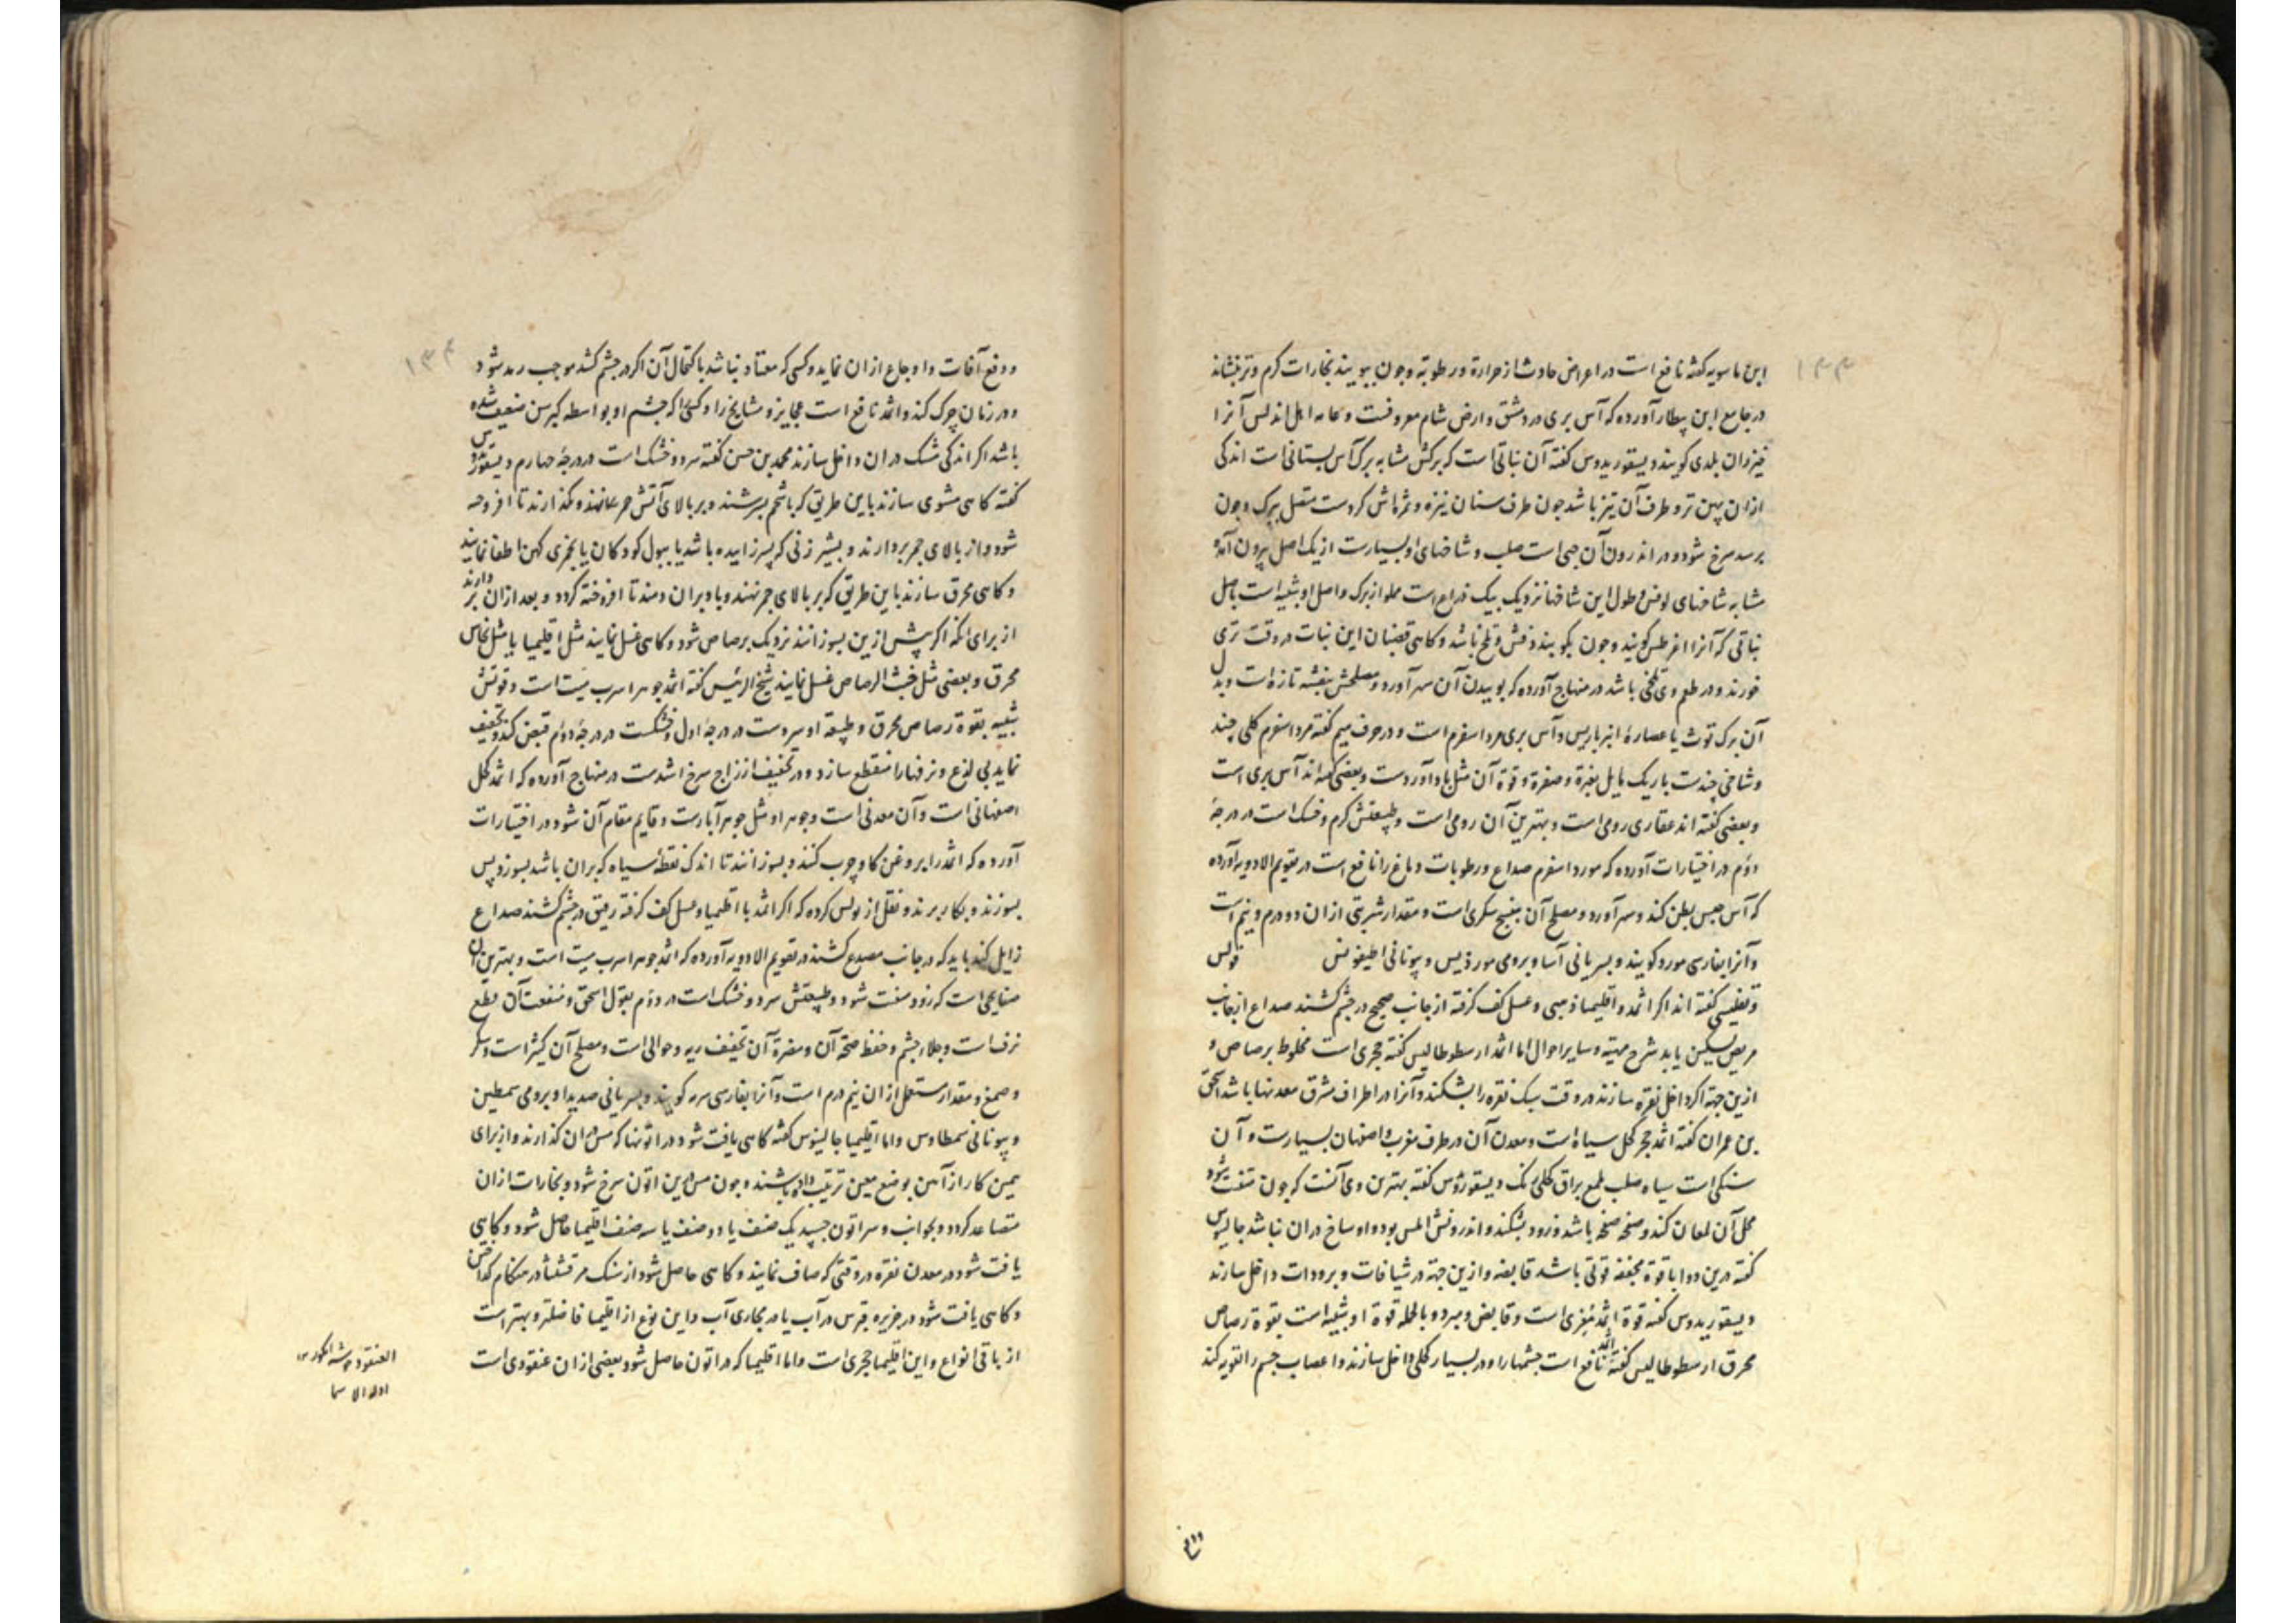 ۱۳۳
ابن ماسویه کفته نافع است در اعراض حادث از حرارة و رطوبة و چون ببویند بخارات کرم و تر بنشاند
در جامع ابن بیطار آورده که آس بری در دمشق و ارض شام معروفست و عامه اهل اندلس آنرا
خیزران بلدی کویند دیسقوریدوس کفته آن نباتی است که برکش مشابه برک آس بستانی است اندکی
ازان پهن تر و طرف آن تیز باشد چون طرف سنان نیزه و ثمراش کردست متصل ببرک و چون
برسد سرخ شود و در اندرون آن حبی است صلب و شاخهای او بسیارست از یک اصل بیرون آمده
مشابه شاخهای لوفس و طول این شاخها نزدیک بیک ذراع است مملو از برک و اصل او شبیه است باصل
نباتی که آنرا اغرطس کویند و چون بکویند عفش و تلخ باشد و کاهی قضبان این نبات در وقت تری
خورند و در طعم وی تلخی باشد در منهاج آورده که بوییدن آن سهر آورد و مصلحش بنفشه تازه است و بدل
آن برک توث یا عصارۀ انبرباریس و آس بری مرداسفرم است و در حرف میم کفته مرداسفرم کلی چند
و شاخی چندست باریک مایل بغبرة و صفرة و قوة آن مثل باداوردست و بعضی کفته اند آس بری است
و بعضی کفته اند عقاری رومی است و بهترین آن رومی است و طبیعتش کرم و خشک است در درجۀ
دؤم در اختیارات آورده که مورداسفرم صداع و رطوبات دماغ را نافع است در تقویم الادویه آورده
که آس حبس بطن کند و سهر آورد و مصلح آن بنفسج سکری است و مقدار شربتی ازان دو درم و نیم است
و آنرا بفارسی مورد کویند و بسریانی آسا و برومی مورذیس و بیونانی اطیغوغس فولس
و تطیسی کفته اند اکر اثمد و اقلیمیا ذهبی و عسل کف کرفته از جانب صحیح در چشم کشند صداع از جانب
مریض تسکین یابد شرح مهیة و سایر احوال اما اثمد ارسطوطالیس کفته حجری است مخلوط برصاص و
ازین جهة اکر داخل نقره سازند در وقت سبک نقره را بشکند و آنرا در اطراف مشرق معدنها باشد اسحق
بن عمران کفته اثمد حجر کحل سیاه است و معدن آن در طرف مغرب و اصفهان بسیارست و آن
سنکی است سیاه صلب لمع براق کحلی رنک دیسقوریدوس کفته بهترین وی آنست که چون متفتت شود
محل آن لمعان کند و صفحه صفحه باشد و زود بشکند و اندرونش املس بود و اوساخ در ان نباشد جالینوس
کفته درین دوا با قوة مجففه قوتی باشد قابضه و ازین جهة در شیافات و برودات داخل سازند
دیسقوریدوس کفته قوة اثمد مغری است و قابض و مبرد و بالجمله قوة او شبیه است بقوة رصاص
محرق ارسطوطالیس کفته اثمد نافع است چشمها را و در بسیار کحلی داخل سازند و اعصاب چشم را تقویه کند
۱۳۴
و دفع آفات و اوجاع ازان نماید و کسی که معتاد نباشد باکتحال آن اکر در چشم کشد موجب رمد شود
و در زمان چرک کند و اثمد نافع است عجایز و مشایخ را و کسی را که چشم او بواسطه کبر سن ضعیف شده
باشد اکر اندکی مشک دران داخل سازند محمد بن حسن کفته سرد و خشک است در درجۀ چهارم دیسقوریدوس
کفته کاهی مشوی سازند باین طریق که باشحم بسرشند و بر بالای آتش جمر بنهند و بکذارند تا افروخته
شود و از بالای جمر بردارند و بشیر زنی که پسر زاییده باشد یا ببول کودکان یا بخمری کهن اطفا نمایند
و کاهی محرق سازند باین طریق که بر بالای جمر نهند و باد بران دمند تا افروخته کردد و بعد ازان بردارند
از برای آنکه اکر پیش ازین بسوزانند نزدیک برصاص شود و کاهی غسل نمایند مثل اقلیمیا یا مثل نحاس
محرق و بعضی مثل خبث الرصاص غسل نمایند شیخ الرئیس کفته اثمد جوهر اسرب میت است و قوتش
شبیه بقوة رصاص محرق و طبیعة او سردست در درجۀ اول و خشکست در درجۀ دوم قبض کند و تجفیف
نماید بی لذع و نزفها را منقطع سازد و در تجفیف از زاج سرخ اشدست در منهاج آورده که اثمد کحل
اصفهانی است و آن معدنی است و جوهر او مثل جوهر آبارست و قایم مقام آن شود در اختیارات
آورده که اثمد را بروغن کاو چرب کنند و بسوزانند تا اندک نقطۀ سیاه که بران باشد بسوزد پس
بسوزند و بکار برند و نقل از بولس کرده که اکر اثمد با اقلیمیا و عسل کف کرفته رقیق در چشم کشند صداع
زایل کند باید که در جانب مصدع کشند در تقویم الادویه آورده که اثمد جوهر اسرب میت است و بهترین آن
صفایحی است که زود متفتت شود و طبیعتش سرد و خشک است در دؤم بقول اسحق و منفعت آن قطع
نزف است و جلاء چشم و حفظ صحة آن و مضرة آن تجفیف ریه و حوالی است و مصلح آن کثیرا است و سکر
و صمغ و مقدار مستعمل ازان نیم درم است و آنرا بفارسی سرمه کویند و بسریانی صدیدا و برومی سمطین
و بیونانی سمطاوس و اما اقلیمیا جالینوس کفته کاهی یافت شود در اتونها که مس دران کذارند و از برای
همین کار از آهن بوضع معین ترتیب داده باشند و چون مس درین اتون سرخ شود و بخارات ازان
متصاعد کردد و بجوانب و سر اتون چسپد یک صنف یا دو صنف یا سه صنف اقلیمیا حاصل شود و کاهی
یافت شود در معدن نقره در وقتی که صاف نمایند و کاهی حاصل شود از سنک مرقشیثا در هنکام کداختن
و کاهی یافت شود در جزیره قبرس در آب یا در مجاری آب و این نوع از اقلیمیا فاضلتر و بهترست
از باقی انواع و این اقلیمیا حجری است و اما اقلیمیا که در اتون حاصل شود بعضی ازان عنقودی است
العنقود خوشه انکور ۱۲
الاسما